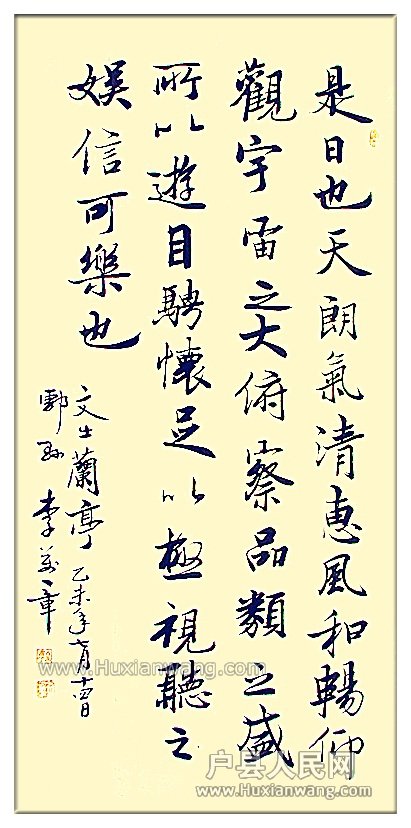 是日也天朗氣清惠風和暢仰
觀宇宙之大俯察品類之盛
所以遊目騁懷足以極視聽之
娛信可樂也
文出蘭亭 乙未年七月十四日
鄠縣 李章
www.Huxianwang.com
户县人民网
www.Huxianwang.com